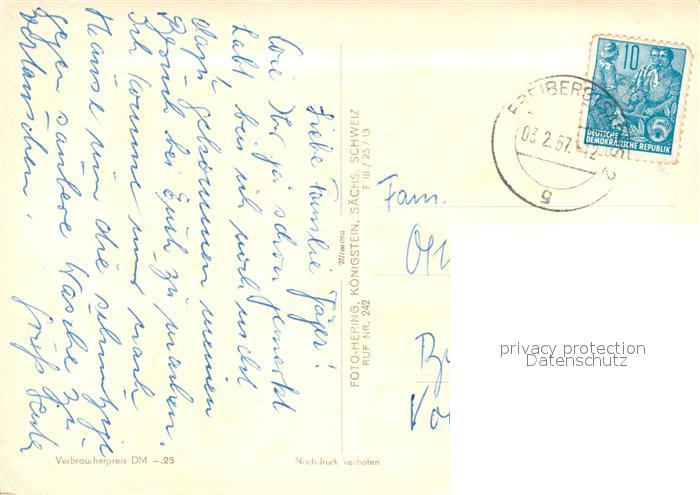 Liebe Familie Jäger!
Wie Ihr ja schon gemerkt
habt bin ich noch nicht
dazu gekommen meinen
Besuch bei Euch zu machen.
Ich komme nur nach
Hause um die schmutzige
gegen saubere Wäsche zu
vertauschen.
Gruß
Mimosa
FOTO-HERING, KÖNIGSTEIN, SÄCHS. SCHWEIZ
RUF NR. 242
F III / 25 / 13
Verbraucherpreis DM -.25
Nachdruck verboten
10
DEUTSCHE
DEMOKRATISCHE REPUBLIK
5
FREIBERG
03.2.57.-12
2
g
Fam.
privacy protection
Datenschutz